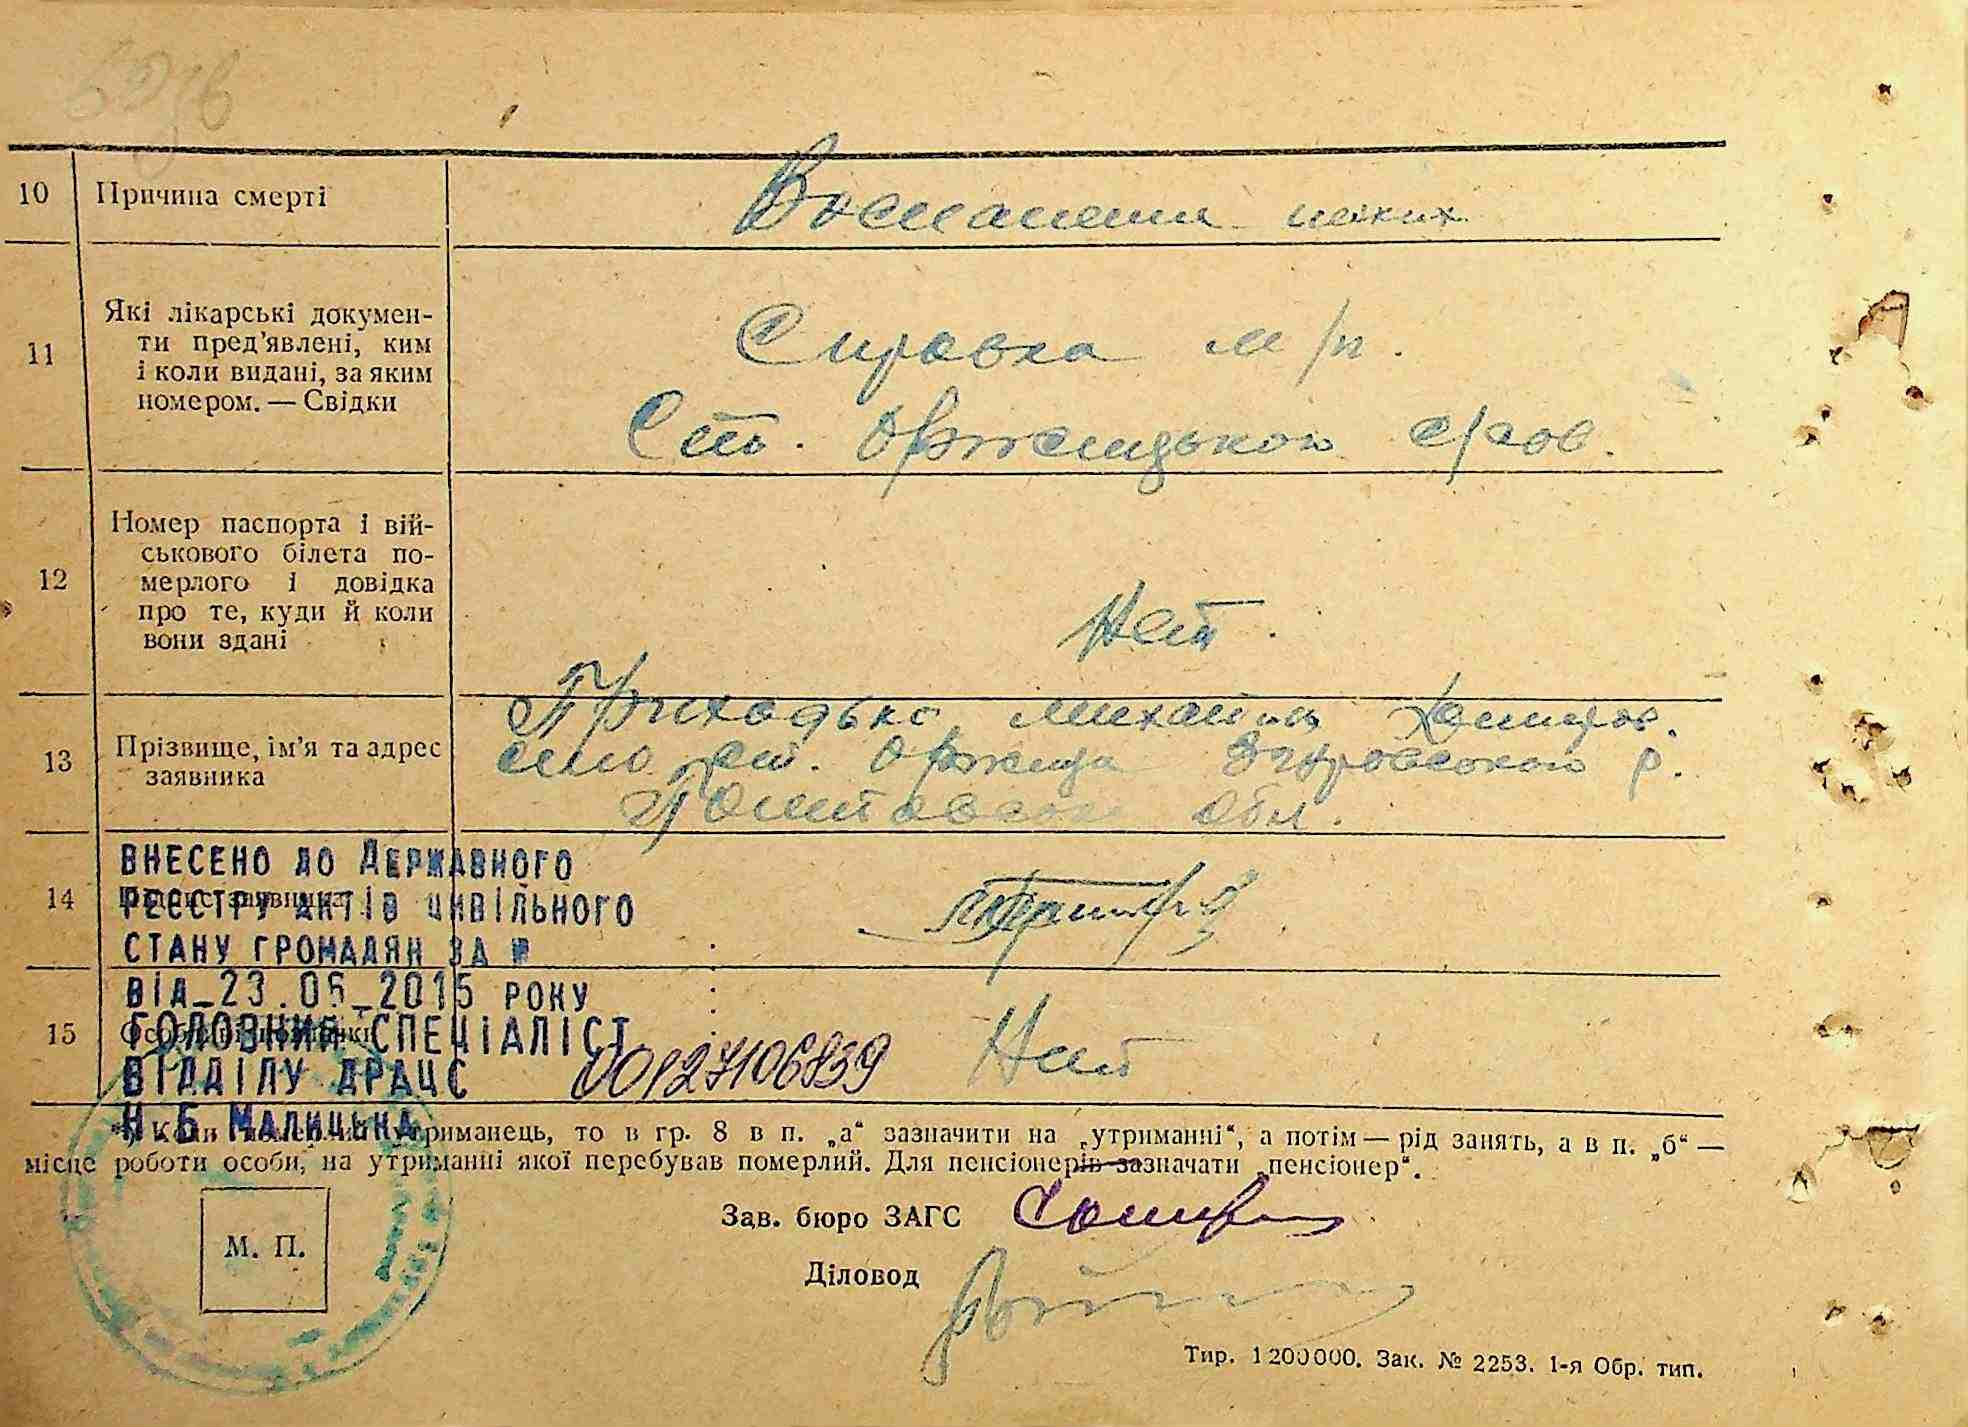 10 Причина смерті Воспаление легких
11 Які лікарські докумен-
ти пред'явлені, ким
і коли видані, за яким
номером. — Свідки
Справка м/п.
Ст. Оржицькою с/сов.
12 Номер паспорта і вій-
ськового білета по-
мерлого і довідка
про те, куди й коли
вони здані
Нет.
13 Прізвище, ім'я та адрес
заявника
Приходько Михаил
село ст. Оржица Згуровского р.
Полтавськ обл.
14 Підпис заявника
15 Особливі
Нет
ВНЕСЕНО ДО ДЕРЖАВНОГО
РЕЄСТРУ АКТІВ ЦИВІЛЬНОГО
СТАНУ ГРОМАДЯН ЗА №
ВІД_23.06_2015 РОКУ
ГОЛОВНИЙ СПЕЦІАЛІСТ
ВІДДІЛУ ДРАЦС 00127106839
Н.Б.МАЛИЦЬКА
утриманець, то в гр. 8 в п. „а“ зазначити на „утриманні“, а потім — рід занять, а в п. „б“ —
місце роботи особи, на утриманні якої перебував померлий. Для пенсіонерів зазначати „пенсіонер“.
М. П.
Зав. бюро ЗАГС
Діловод
Тир. 1200000. Зак. № 2253. 1-я Обр. тип.